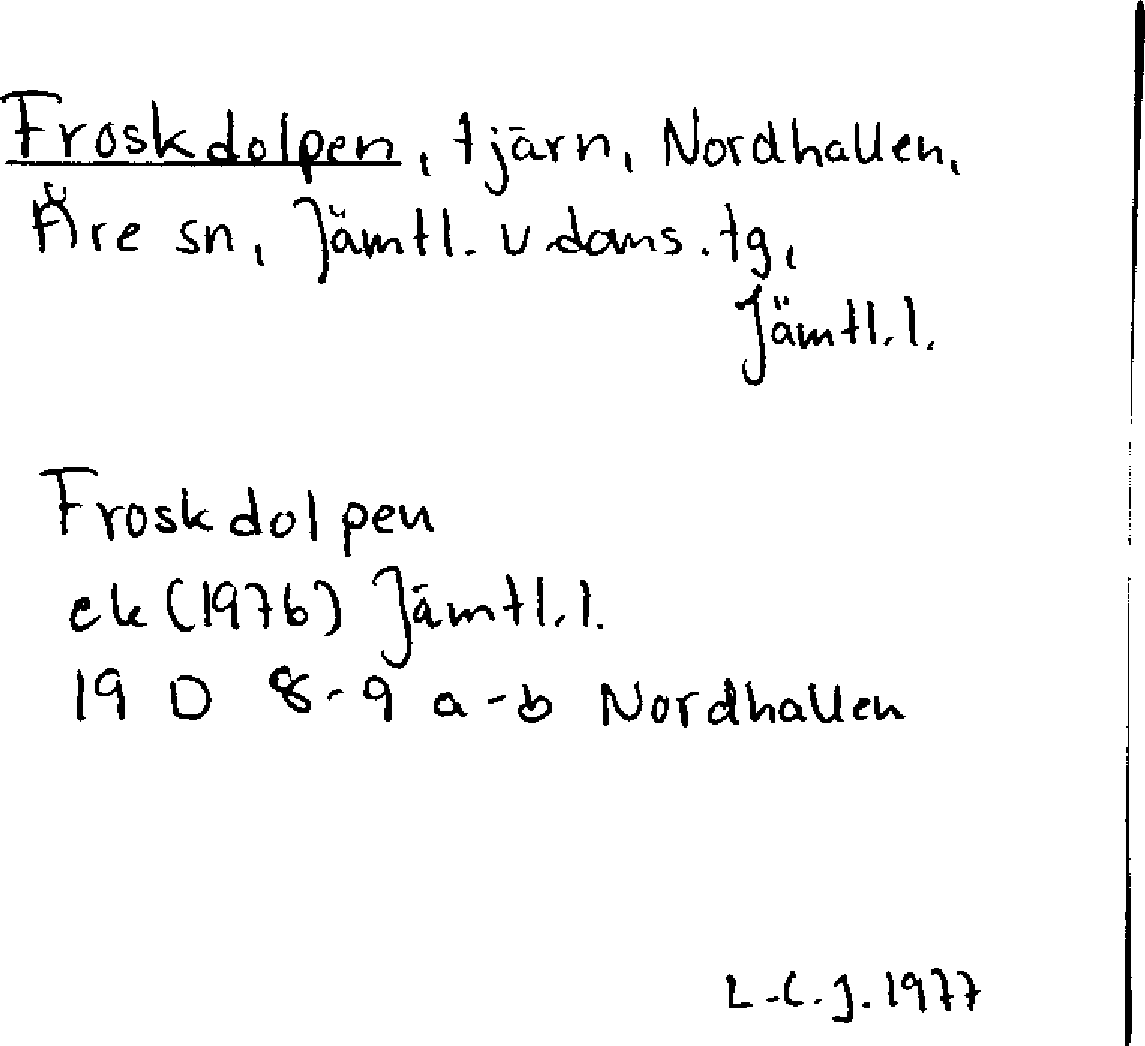 Froskdolpen, tjärn, Nordhallen,
Åre sn, Jämtl. v doms. tg,
Jämtl. l.
Froskdolpen
ek (1976) Jämtl. l.
19 D 8-9 a-b Nordhallen
L-C. J. 1977